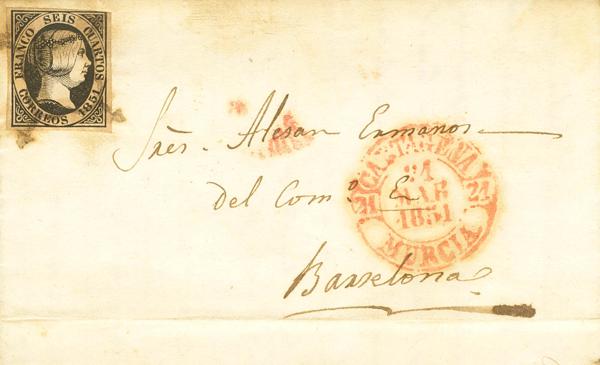 FRANCO SEIS CUARTOS
CORREOS 1851
Sres. Alesan Ermanos
del Com.o E
Barselona
CARTAGENA
21
MAR
1851
21 21
MURCIA